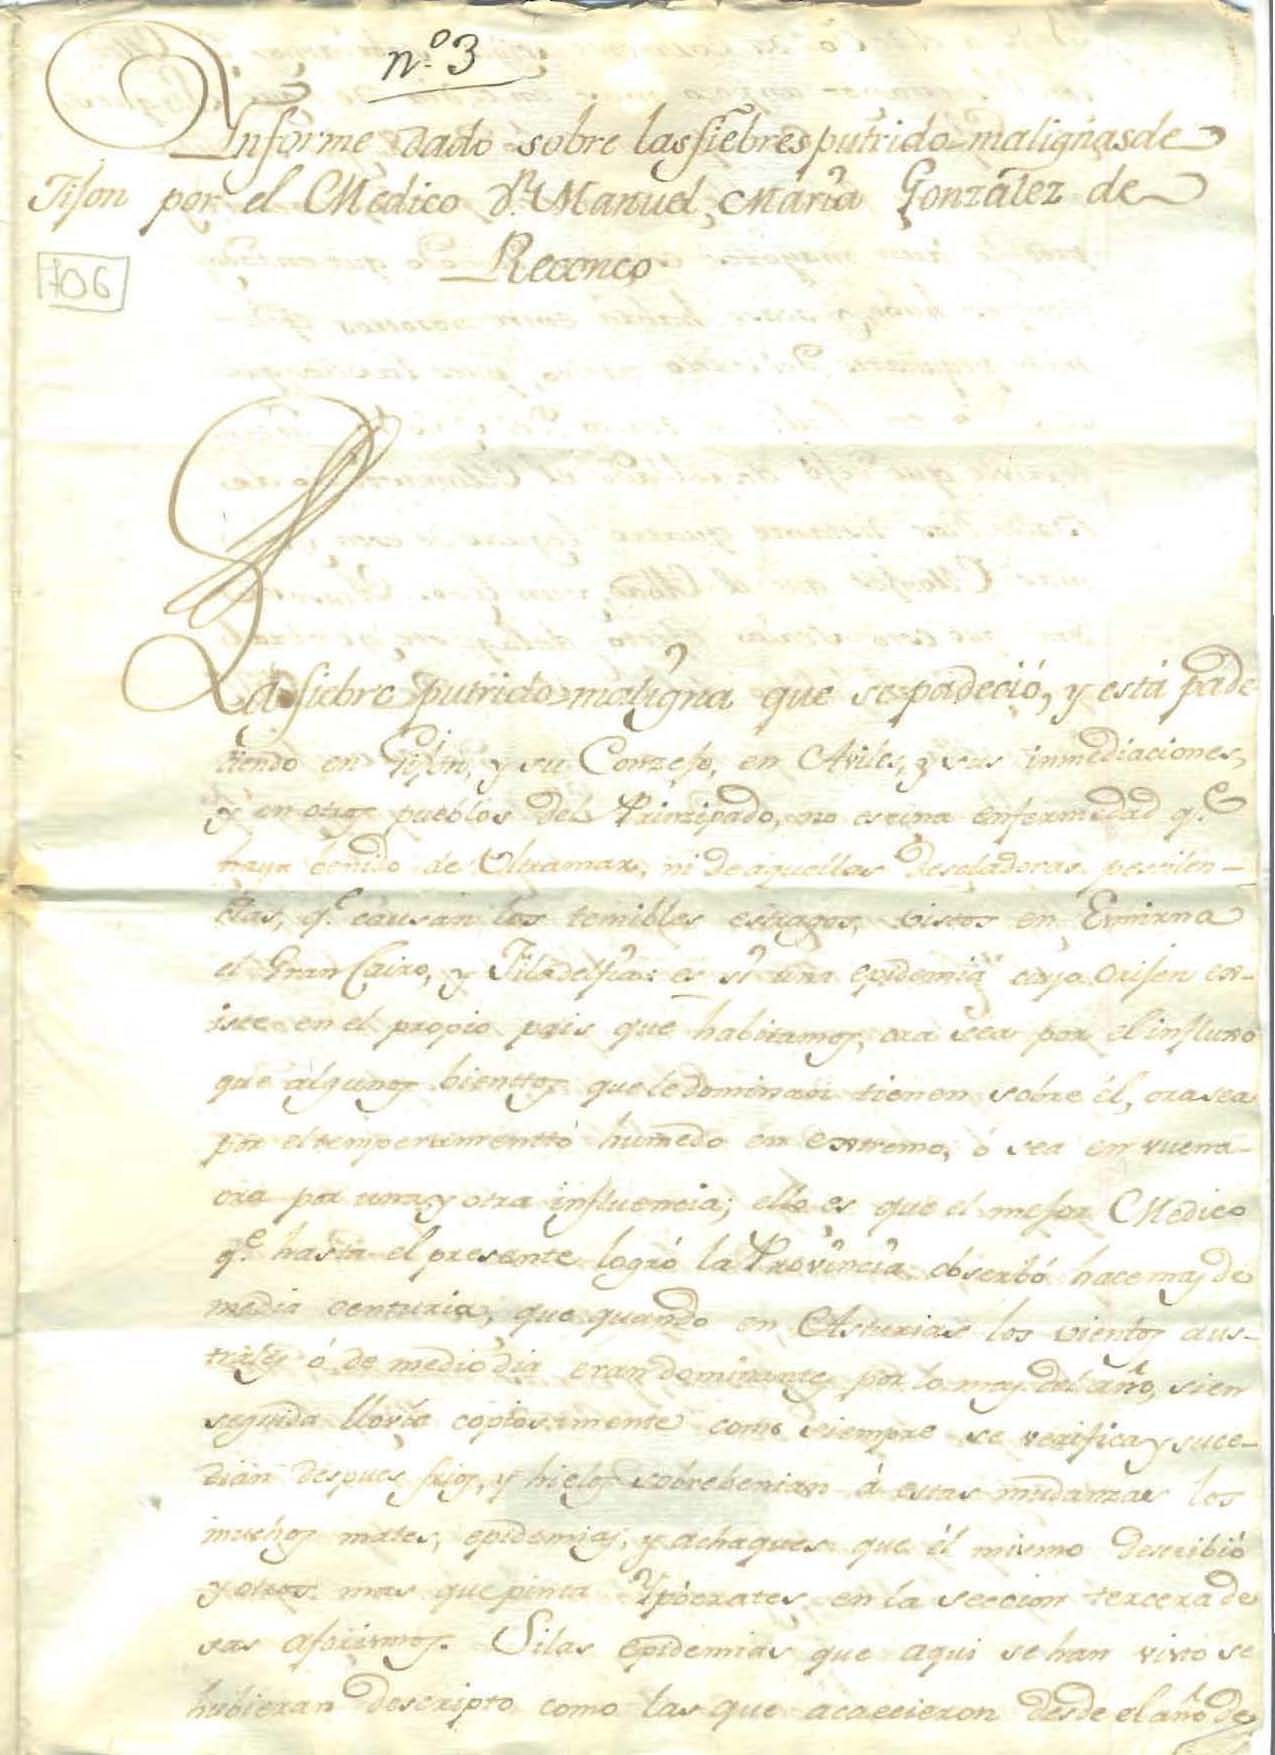 n.º 3
Informe dado sobre las fiebres putrido=malignas de
Jijon por el Medico D.n Manuel Maria Gonzalez de
Reconco
706
La fiebre putrido=maligna que se padeció, y está pade
ciendo en Gijon, y su Conzejo, en Aviles, y sus inmediaciones,
y en otros pueblos del Prinzipado, no es una enfermedad q.e
haya benido de Ultramar, ni de aquellas desoladoras pestilen-
cias, q.e causan los temibles estragos, vistos en Esmirna
el Gran Cairo, y Filadelfia: es si una epidemia cuyo orijen ex-
iste en el propio pais que habitamos, ora sea por el influxo
que algunos bienttos que le dominan tienen sobre él, ora sea
por el temperamenttó humedo en extremo, ó sea en vuena
ora por una y otra influencia; ello es que el mejor Medico
q.e hasta el presente logró la Provincia observó hace mas de
media centuria, que quando en Asturias los vientos aus-
trales ó de medio dia eran dominantes por lo mas del año, si en
seguida llovía copiosamente como siempre se verifica y suce-
dian despues frios, y hielos sobrebenian á estas mudanzas los
muchos males, epidemias, y achaques que él mismo describió
y otros mas que pinta Ypócrates en la seccion tercera de
sus aforismos. Si las epidemias que aqui se han visto se
hubieran descripto como las que acaecieron desde el año de